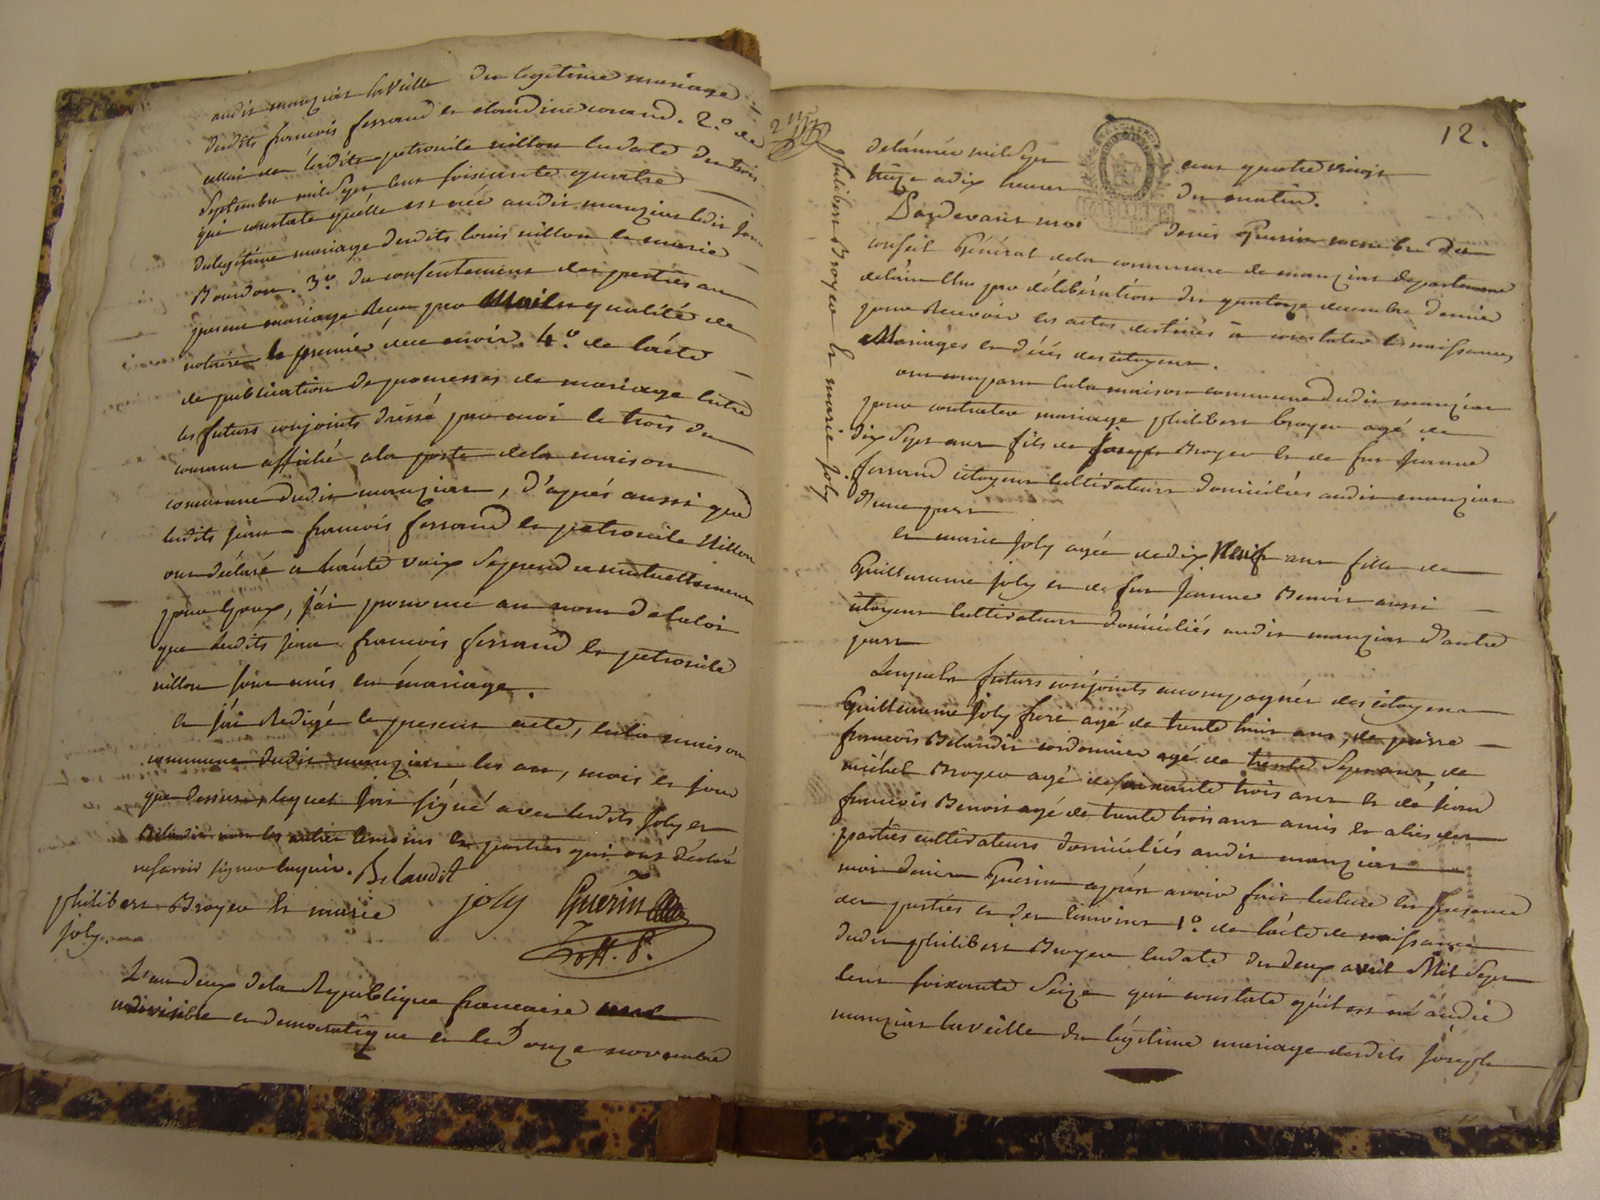 audit manziat la veille du legitime mariage
desdits francois ferrand et claudine conand. 2.º de
celui de ladite petronile nillon en date du trois
Septembre mil Sept cent soixante quatre
qui constate qu'elle est née audit manziat ledit jour
du legitime mariage desdits louis nillon et marie
Bourdon. 3.º du consentement des parties au
present mariage Recu par qualité de
notaire le premier de ce mois. 4.º de l'acte
de publication de promesses de mariage entre
les futurs conjoints dressé par moi le trois du
courant affiché a la porte de la maison
commune dudit manziat, d'apres aussi que
lesdits jean francois ferrand et petronile Nillon
ont déclaré a haute voix Se prendre mutuellement
pour Epoux, j'ai prononcé au nom de la loi
que lesdits jean francois ferrand et petronile
nillon sont unis en mariage.
et j'ai Redigé le present acte, en la maison
commune dudit manziat les an, mois et jour
que dessus lequel j'ai signé avec lesdits joly et
Belaudit non les autres temoins et parties qui ont déclaré
ne savoir signer enquis. Belaudit
joly Guerin
philibert Broyer et marie
joly
L'an deux de la République francaise une
indivisible et democratique et le onze novembre
12.
philibert Broyer et marie joly
de l'année mil Sept cent quatre vingt
treize a dix heures du matin.
Pardevant moi denis Guerin membre du
conseil Général de la commune de manziat departement
de l'ain Elu par délibération du quatorze decembre dernier
pour Recevoir les actes destinés à constater les naissances,
Mariages et décés des citoyens.
ont comparu en la maison commune dudit manziat
pour contracter mariage philibert broyer agé de
dix Sept ans fils de joseph Broyer et de feu jeanne
ferrand citoyens cultivateurs domiciliés audit manziat
d'une part
et marie joly agée de dix Neuf ans fille de
Guillaume joly et de feu jeanne Benoit aussi
citoyens cultivateurs domiciliés audit manziat d'autre
part
Lesquels futurs conjoints accompagnés des citoyens
Guillaume joly frere agé de trente huit ans, de pierre
francois Belaudit cordonnier agé de trente Sept ans, de
michel Broyer agé de soixante trois ans et de jean
francois Benoit agé de trente trois ans amis et aliés des
parties cultivateurs domiciliés audit manziat
moi denis Guerin aprés avoir fait lecture en presence
des parties et des temoins 1.º de l'acte de naissance
dudit philibert Broyer en date du deux avril Mil Sept
cent soixante Seize qui constate qu'il est né audit
manziat la veille du légitime mariage desdits joseph